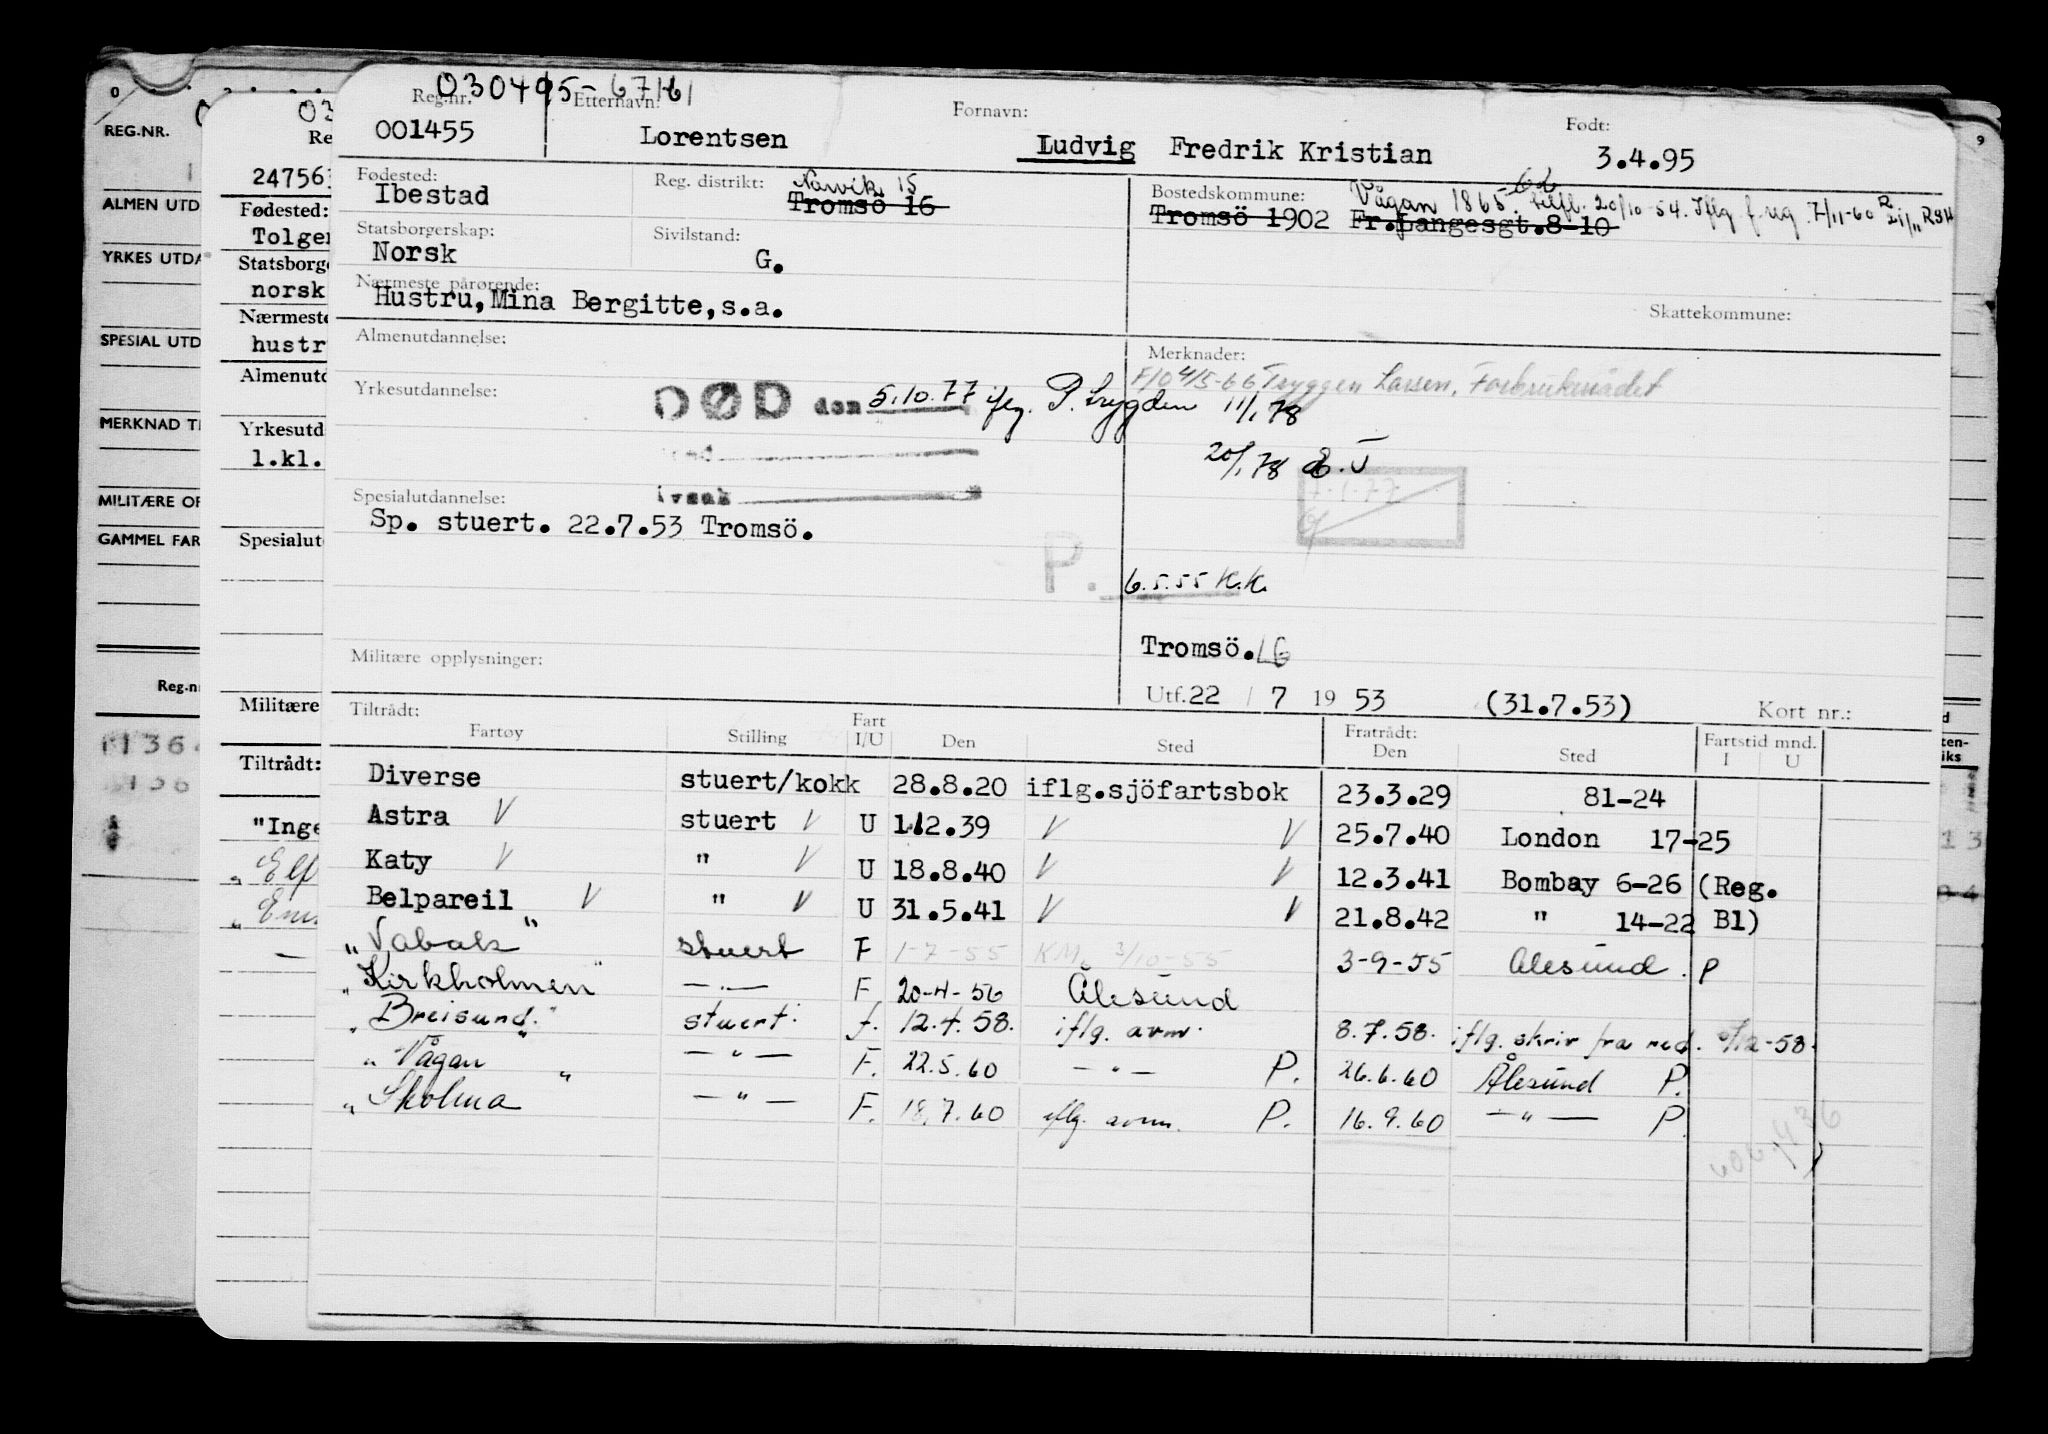 030495-67161
Reg.nr. Etternavn: Fornavn: Født:
001455 Lorentsen Ludvig Fredrik Kristian 3.4.95
Fødested: Reg. distrikt: Narvik 15 Bostedskommune: Vågan 1865
Ibestad Tromsö 16 Tromsö 1902 Fr.Langesgt.8-10 tilfl. 20/10-54. Iflg. f. reg. 7/11-60
Statsborgerskap: Sivilstand:
Norsk G.
Nærmeste pårørende:
Hustru, Mina Bergitte, s.a.
Skattekommune:
Almenutdannelse: Merknader:
Yrkesutdannelse:
DØD den 5.10.77 ifg. P. Trygden 11/1 78
20/1 78
sted
årsak
7.1.77
Spesialutdannelse:
Sp. stuert. 22.7.53 Tromsö.
P. 6.5.55 K.K.
Tromsö. LG
Militære opplysninger:
Utf. 22 / 7 19 53 (31.7.53) Kort nr.:
Tiltrådt: Fratrådt:
Fartøy Stilling Fart I/U Den Sted Den Sted Fartstid mnd. I U
Diverse stuert/kokk 28.8.20 iflg.sjöfartsbok 23.3.29 81-24
Astra V stuert V U 1.12.39 V V 25.7.40 London 17-25
Katy V " V U 18.8.40 V V 12.3.41 Bombay 6-26 (Reg.
Belpareil V " V U 31.5.41 V V 21.8.42 " 14-22 Bl)
"Vabak" stuert F 1-7-55 KM. 3/10-55 3-9-55 Ålesund. P
"Kirkholmen" — " — F. 20-4-56 Ålesund
"Breisund." stuert. f. 12.4.58. iflg. avm. 8.7.58. iflg. skriv fra red. 9/12-58.
"Vågan" — " — F. 22.5.60 — " — P. 26.6.60 Ålesund P.
"Skolma" — " — F. 18.7.60 iflg. avm. P. 16.9.60 — " — P.
REG.NR.
ALMEN UTD
YRKES UTDA
SPECIAL UTD
MERKNAD TI
MILITÆRE OP
GAMMEL FAR
Reg.n
247563
Fødested:
Tolgen
Statsborge
norsk
Nærmeste
hustr
Almenutd
Yrkesutd
1.kl.
Spesialut
Militære
Tiltrådt:
"Inge